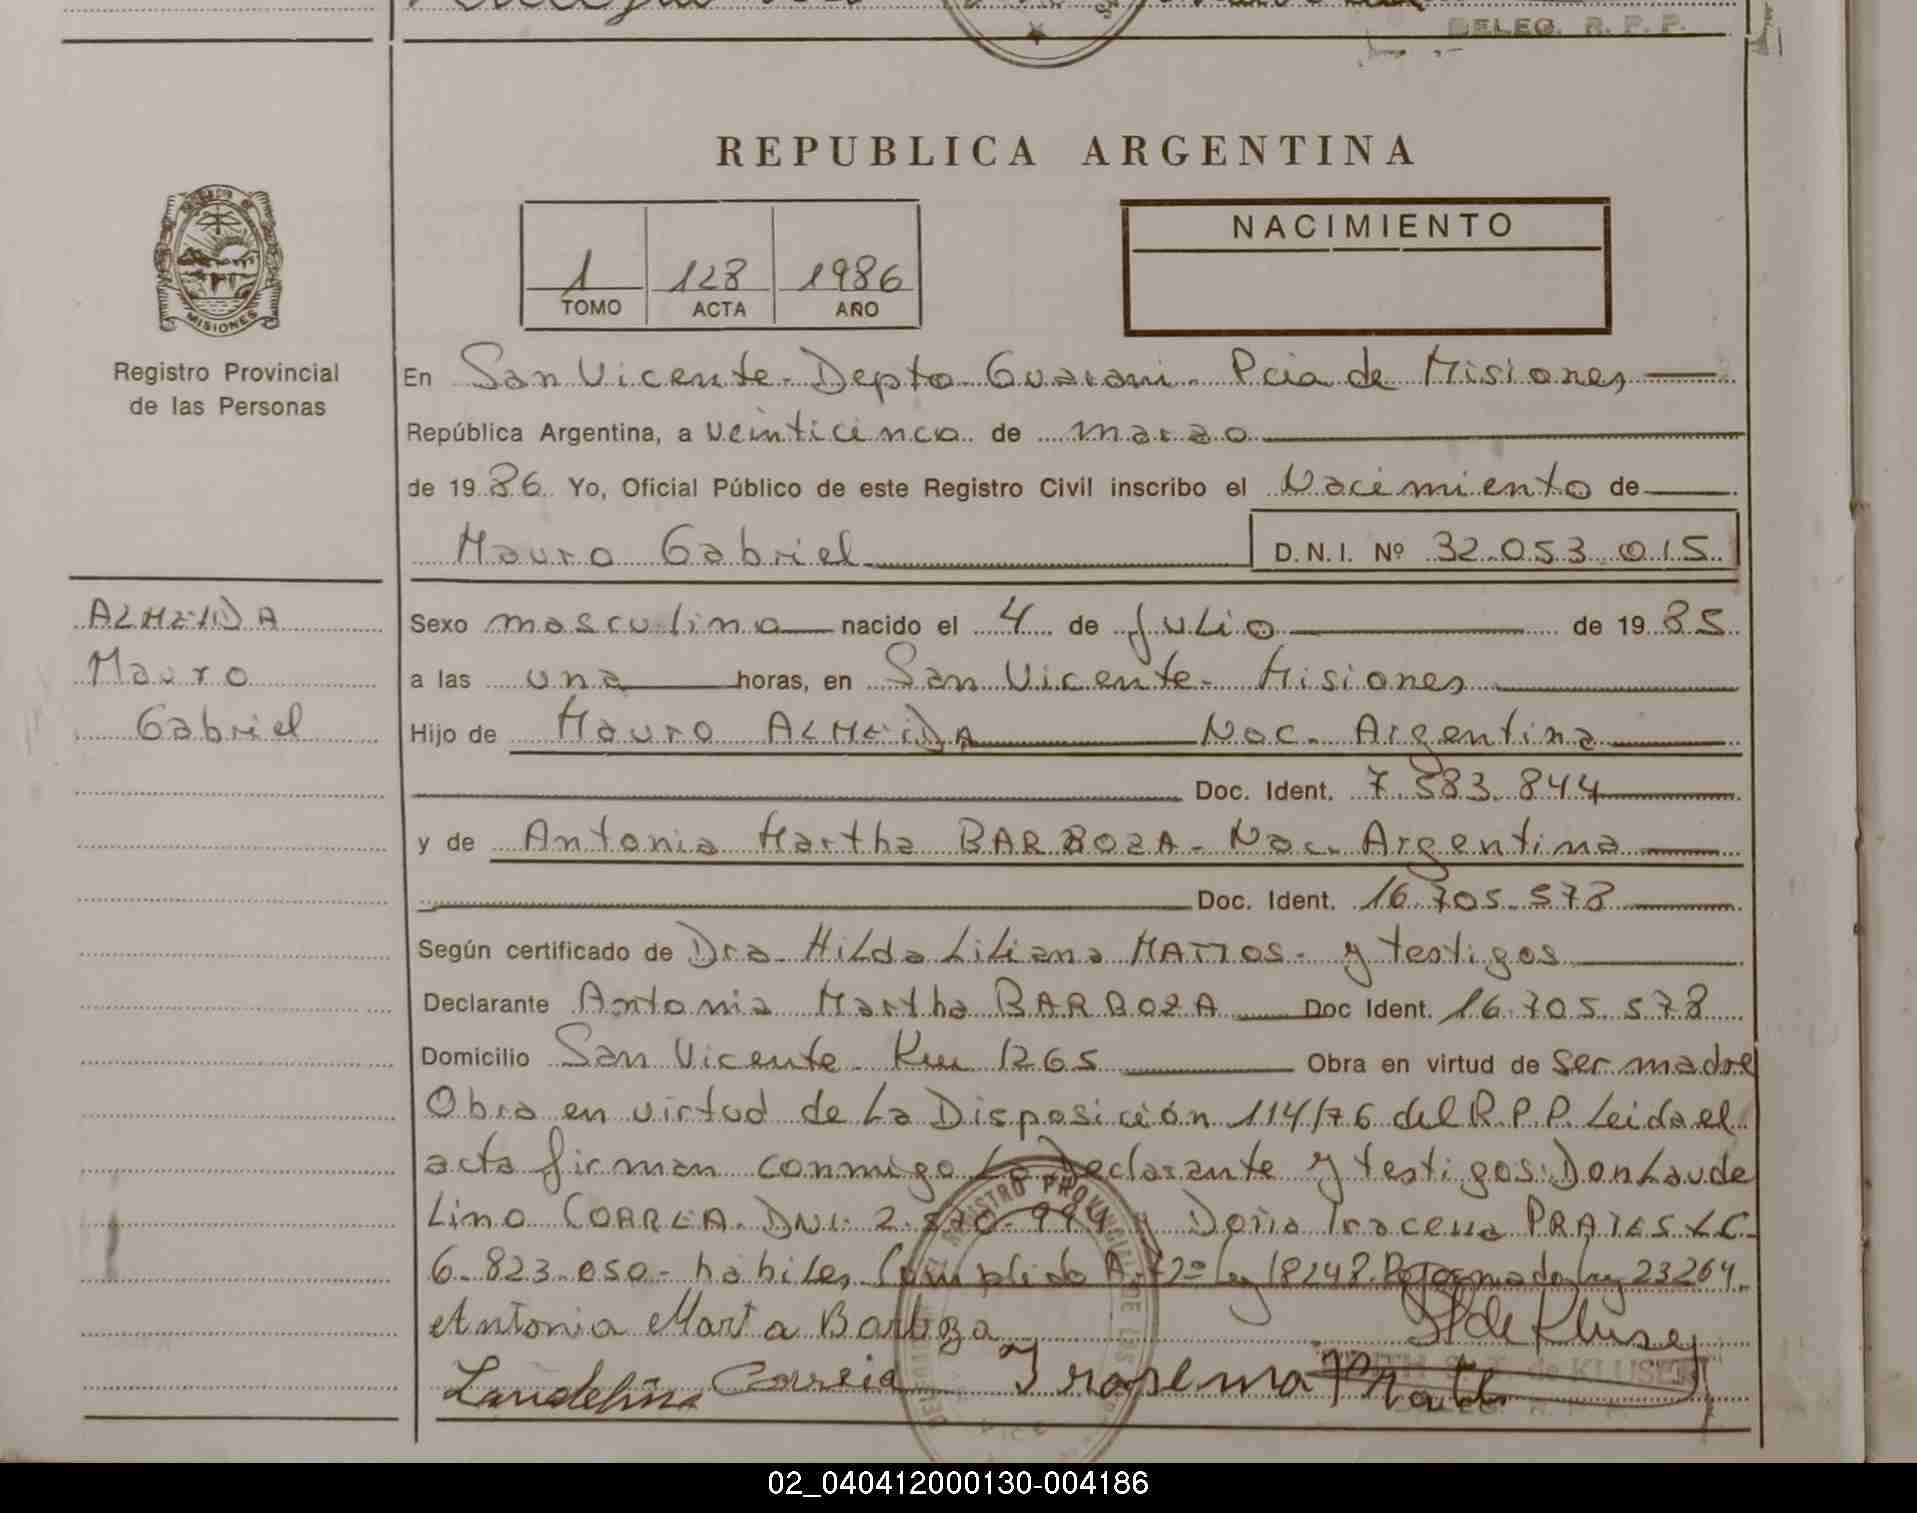 DELEG. R. P. P.
REPUBLICA ARGENTINA
NACIMIENTO
1 128 1986
TOMO ACTA AÑO
MISIONES
Registro Provincial
de las Personas
En San Vicente - Depto Guarani - Pcia de Misiones
República Argentina, a veinticinco de marzo
de 1986 Yo, Oficial Público de este Registro Civil inscribo el Nacimiento de
Mauro Gabriel D.N.I. Nº 32.053.015
ALMEIDA
Mauro
Gabriel
Sexo masculino nacido el 4 de Julio de 1985
a las una horas, en San Vicente - Misiones
Hijo de Mauro ALMEIDA Nac. Argentina
Doc. Ident. 7.583.844
y de Antonia Martha BARBOZA - Nac. Argentina
Doc. Ident. 16.705.578
Según certificado de Dra. Hilda Liliana MATTOS - y testigos
Declarante Antonia Martha BARBOZA Doc Ident. 16.705.578
Domicilio San Vicente Km 1265 Obra en virtud de ser madre
Obra en virtud de la Disposición 114/76 del R.P.P. Leida el
acta firman conmigo La Declarante y testigos: Don Laude
Lino CORREA. DNI. 2. y Doña Iracema PRATES LC.
6.823.050 - habiles, Cumplido Art 2º Ley 18248. Reformado Ley 23264.
Antonia Marta Barboza
S T de Klusey
Laudelino Correia Irasema
de KLUSEY
DELEG. R. P. P.
02_040412000130-004186